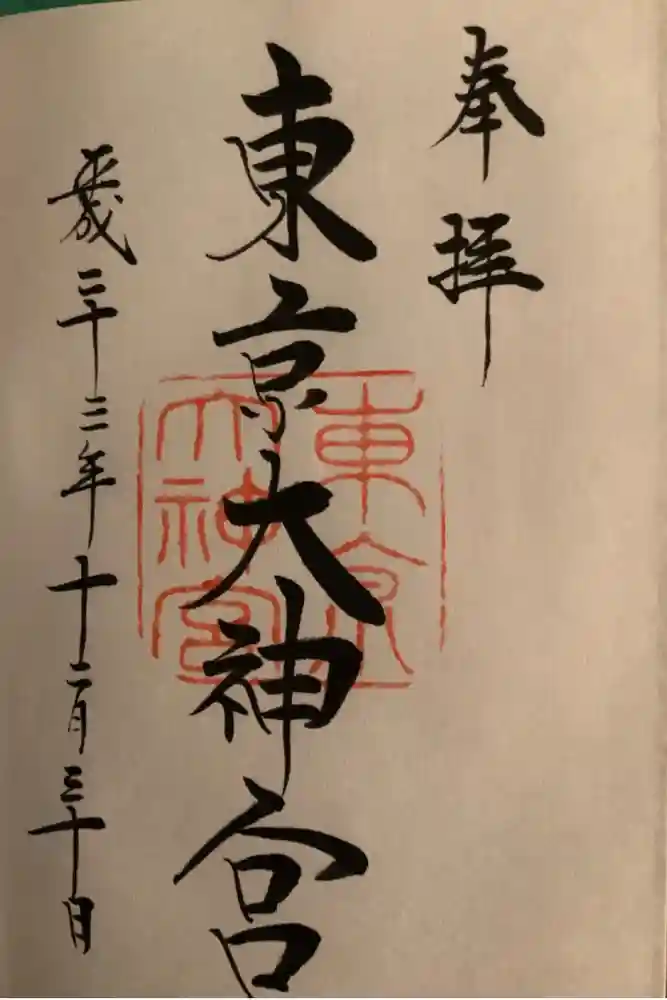 奉拝
東京大神宮
東京
大神宮
平成二十三年十二月三十日